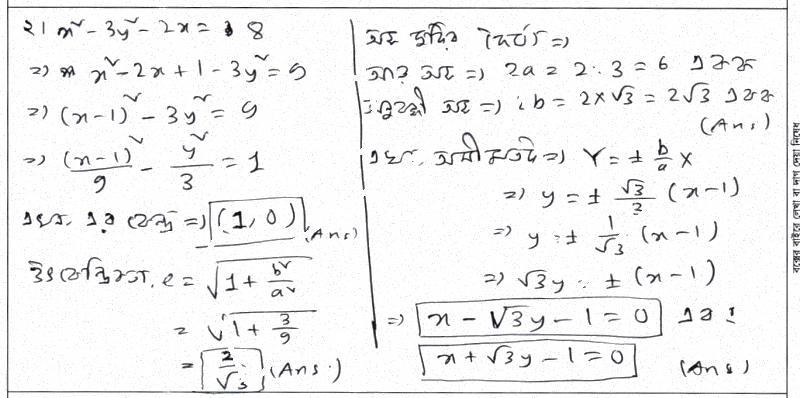 ২। x² - 3y² - 2x = 8
⇒ x² - 2x + 1 - 3y² = 9
⇒ (x-1)² - 3y² = 9
⇒ (x-1)²/9 - y²/3 = 1
এখন, এর কেন্দ্র ⇒ (1, 0) (Ans)
উৎকেন্দ্রিকতা, e = √(1 + b²/a²)
= √(1 + 3/9)
= 2/√3 (Ans.)
অক্ষ দুটির দৈর্ঘ্য ⇒
আড় অক্ষ ⇒ 2a = 2·3 = 6 একক
অনুবন্ধী অক্ষ ⇒ 2b = 2×√3 = 2√3 একক
(Ans)
এখন, অসীমতট ⇒ Y = ± b/a X
⇒ y = ± √3/3 (x-1)
⇒ y = ± 1/√3 (x-1)
⇒ √3y = ± (x-1)
⇒ x - √3y - 1 = 0 এবং
x + √3y - 1 = 0 (Ans)
বক্সের বাইরে লেখা বা দাগ দেয়া নিষেধ